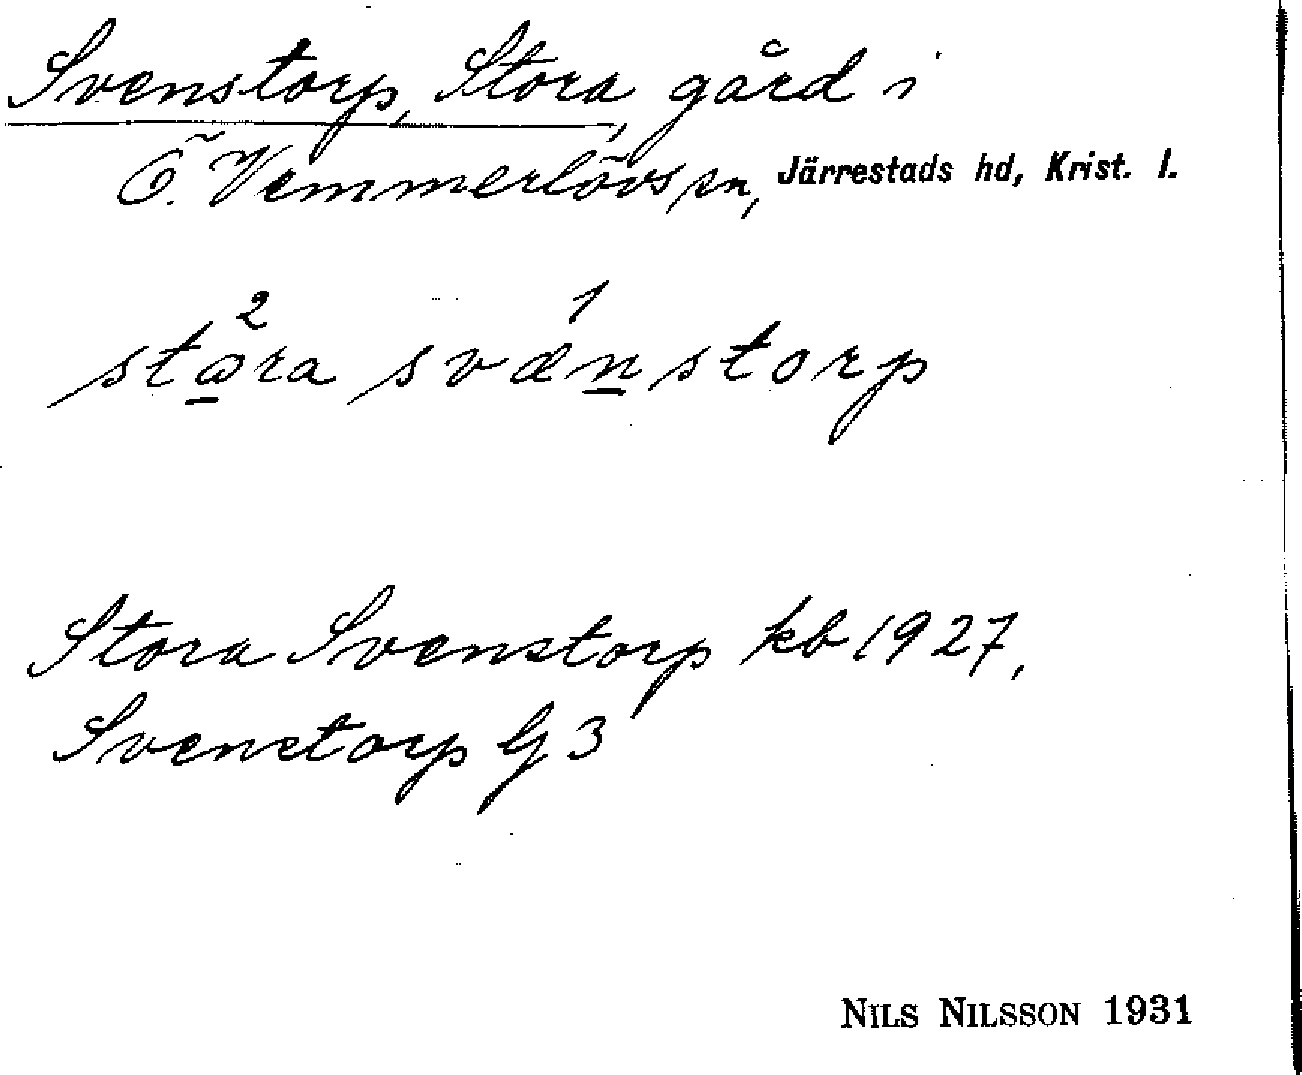 Svenstorp, Stora, gård i
Ö. Vemmerlövs sn, Järrestads hd, Krist. l.
2 1
stɷra svænstorp
Stora Svenstorp kb 1927,
Svenstorp G 3
NILS NILSSON 1931